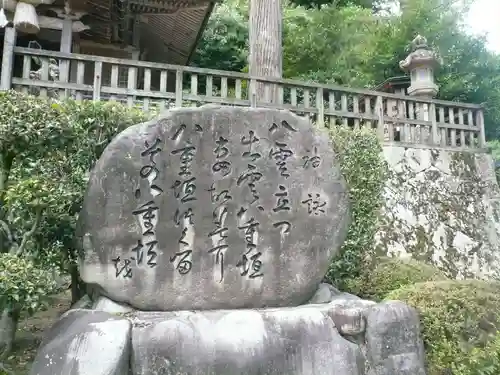 神詠
八雲立つ
出雲八重垣
妻籠尓
八重垣作る
その八重垣
越